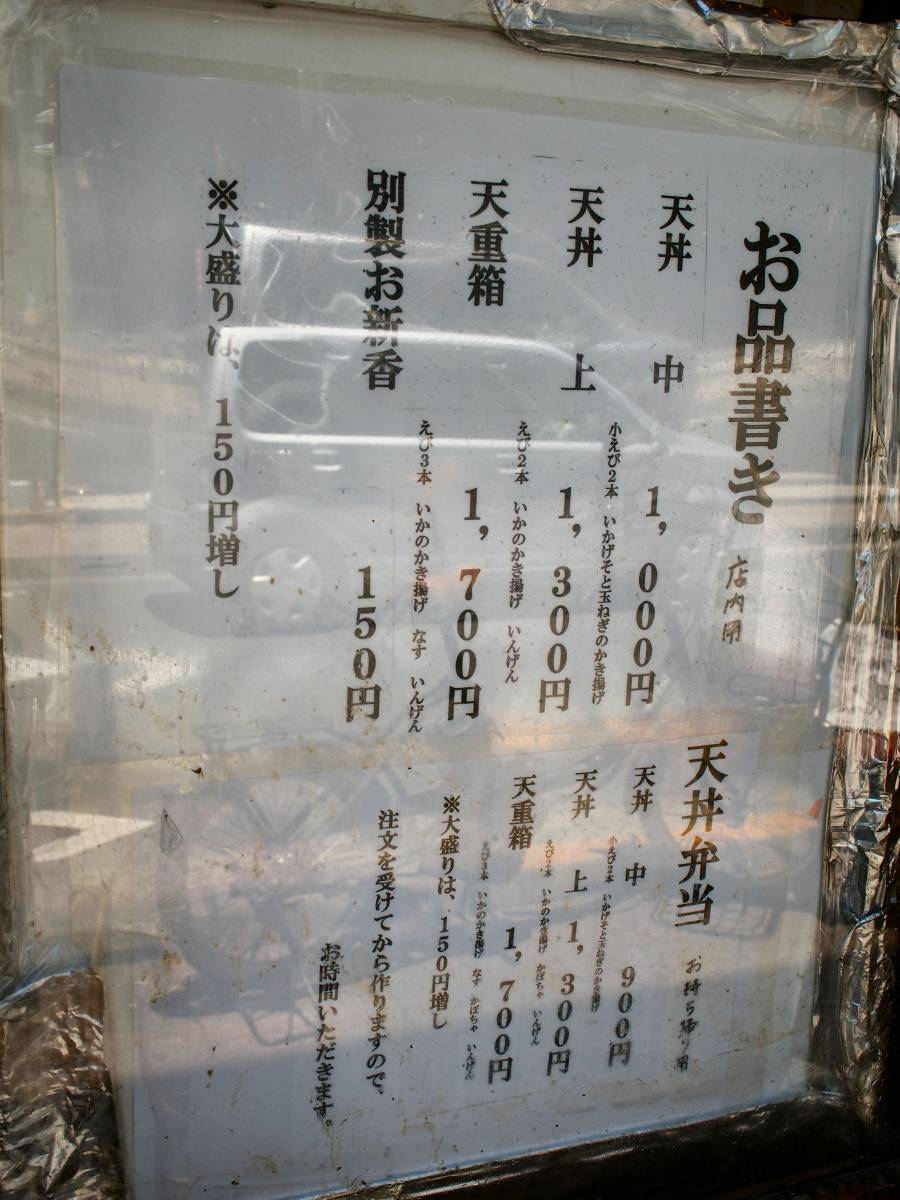 お品書き 店内用
天丼 中 1,000円
小えび2本 いかげそと玉ねぎのかき揚げ
天丼 上 1,300円
えび2本 いかのかき揚げ いんげん
天重箱 1,700円
えび3本 いかのかき揚げ なす いんげん
別製お新香 150円
※大盛りは、150円増し
天丼弁当 お持ち帰り用
天丼 中 900円
小えび2本 いかげそと玉ねぎのかき揚げ
天丼 上 1,300円
えび2本 いかのかき揚げ かぼちゃ いんげん
天重箱 1,700円
えび3本 いかのかき揚げ なす かぼちゃ いんげん
※大盛りは、150円増し
注文を受けてから作りますので、
お時間いただきます。